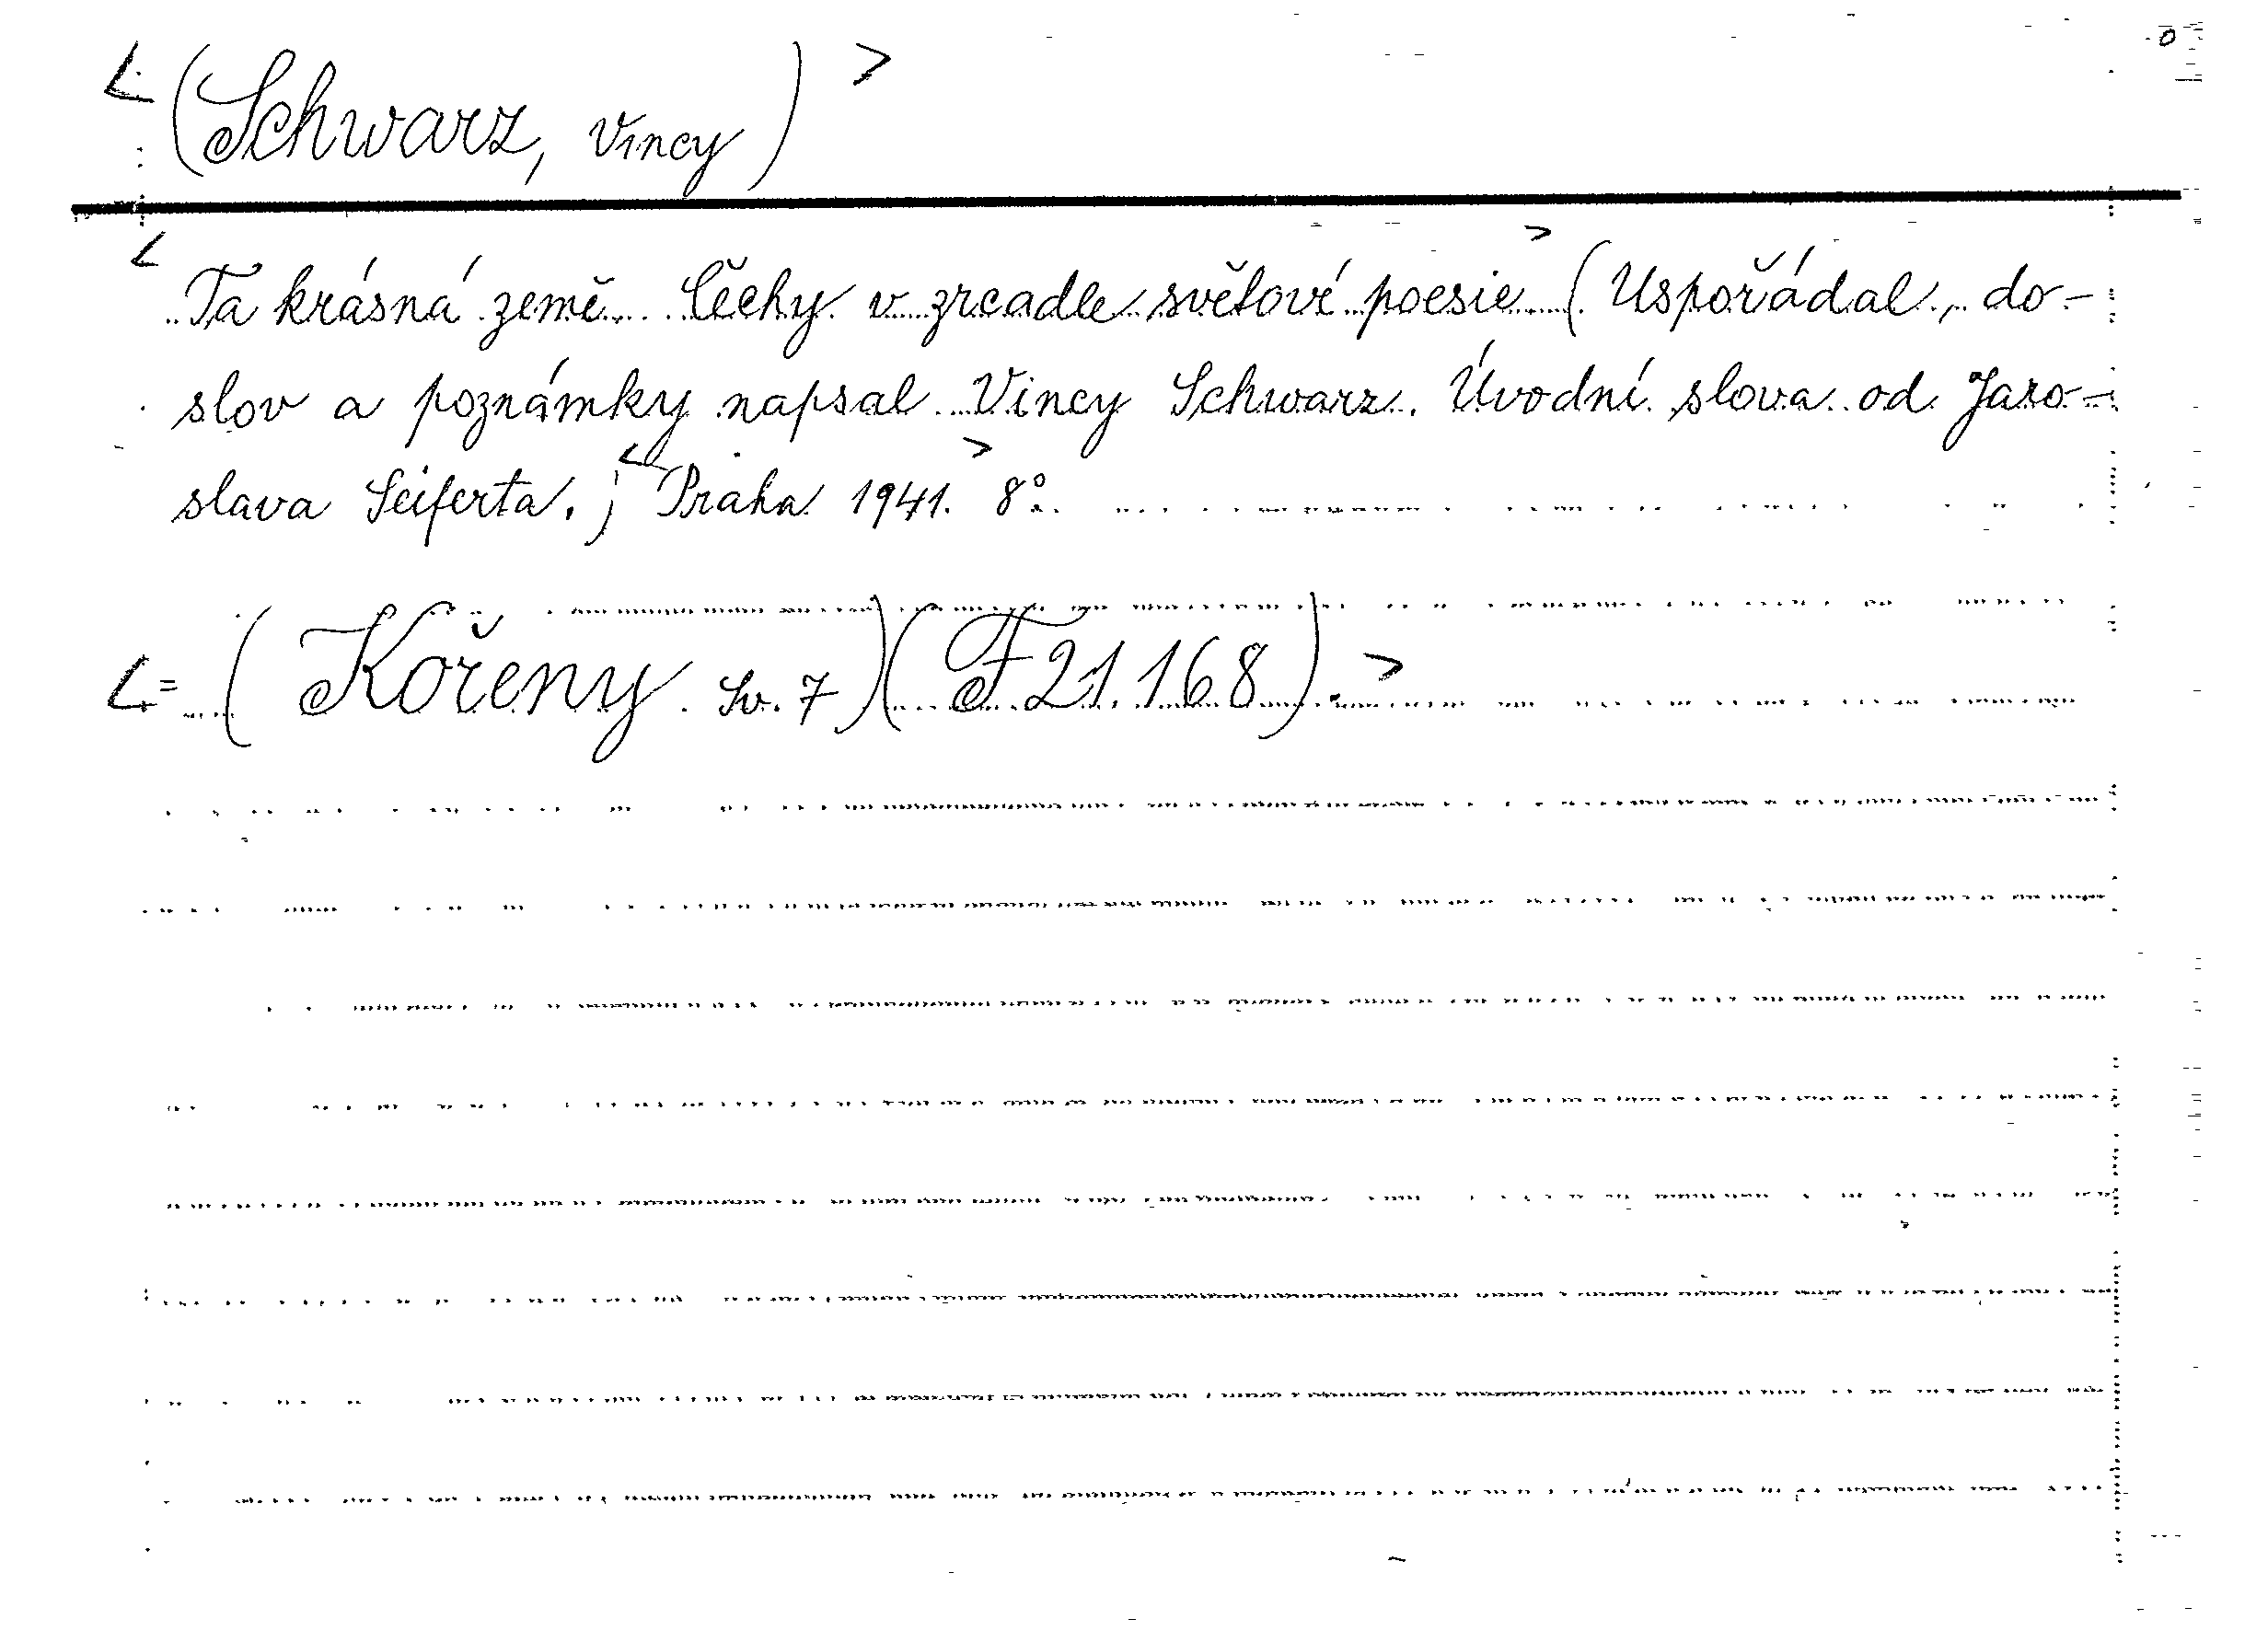 <(Schwarz, Vincy)>
<Ta krásná země. Čechy v zrcadle světové poesie> (Uspořádal, do-
slov a poznámky napsal Vincy Schwarz. Úvodní slova od Jaro-
slava Seiferta.) <Praha 1941.> 8°.
<=(Kořeny sv. 7)(F 21.168).>